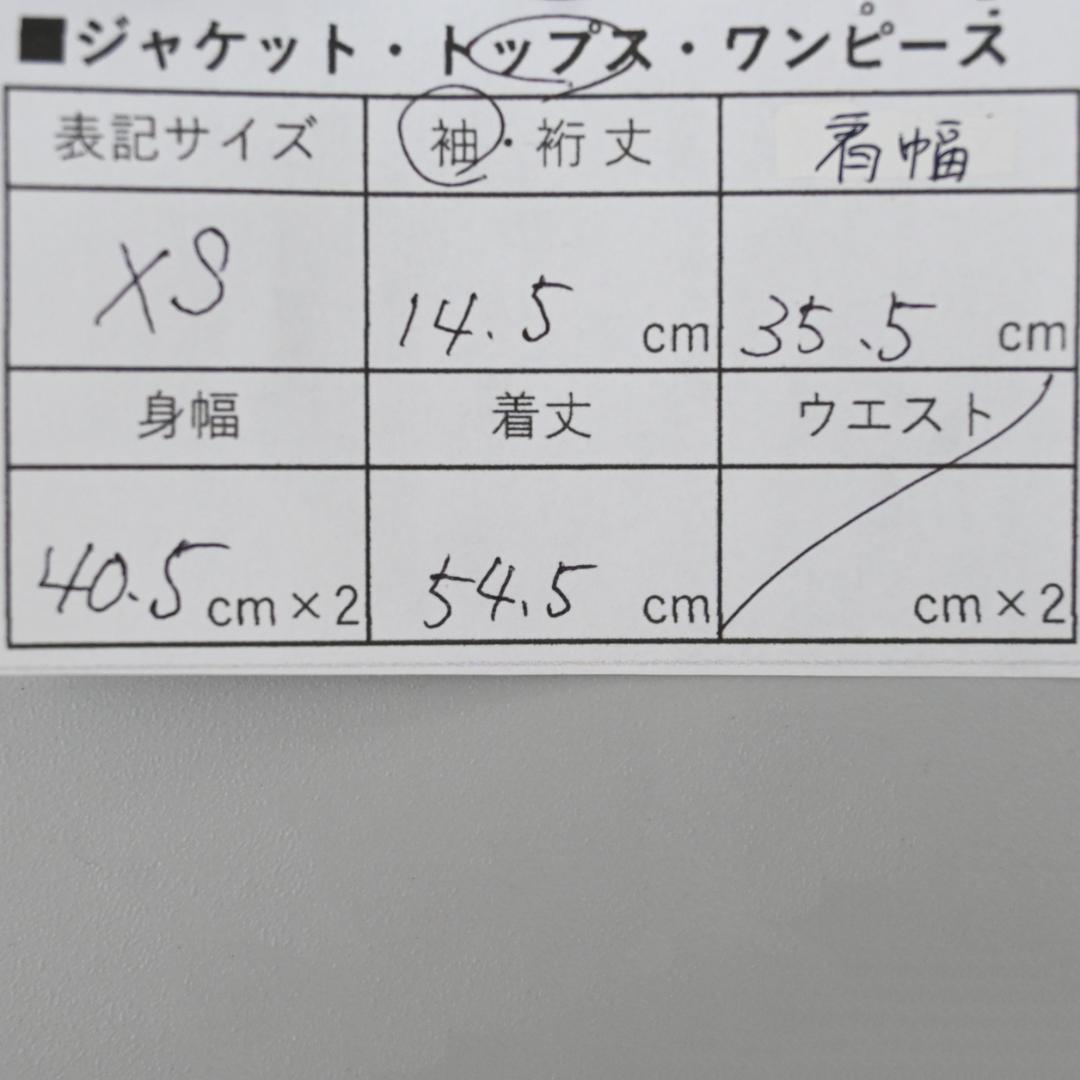 ■ジャケット・トップス・ワンピース
表記サイズ 袖・裄丈 肩幅
XS 14.5 cm 35.5 cm
身幅 着丈 ウエスト
40.5 cm×2 54.5 cm cm×2